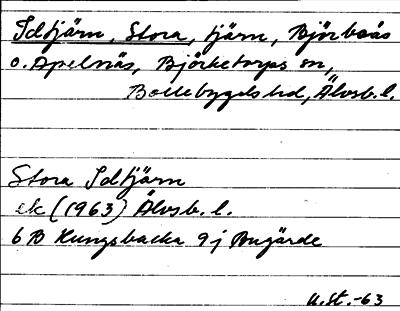 Idtjärn, Stora, tjärn, Björboås
o. Apelnäs, Björketorps sn,
Bollebygds hd, Älvsb. l.
Stora Idtjärn
ek (1963) Älvsb. l.
6 B Kungsbacka 9 j Bugärde
U.St.-63